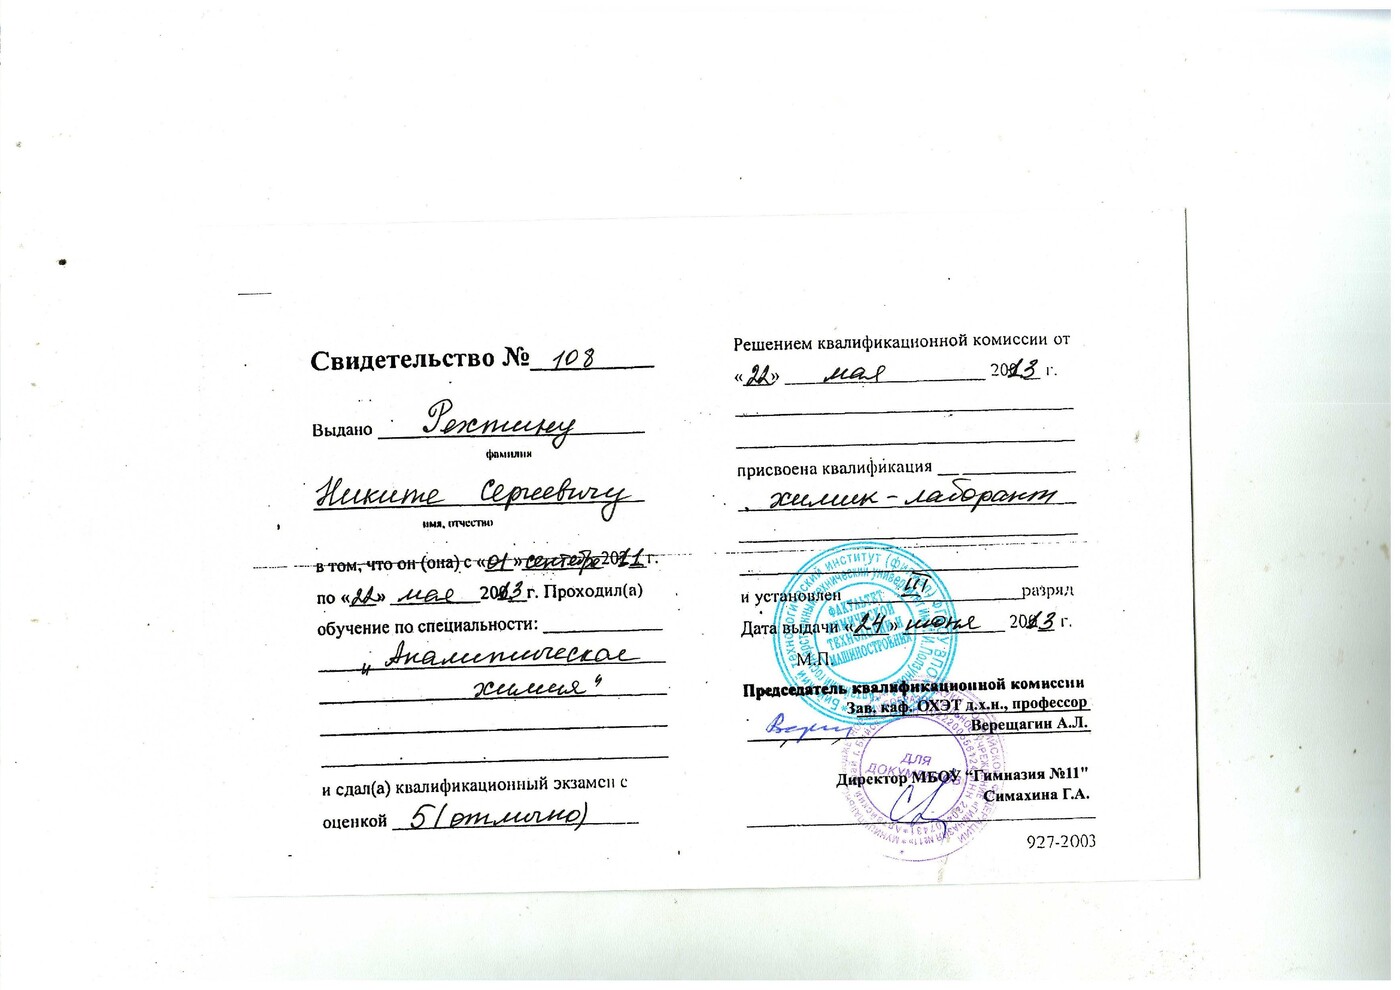 Свидетельство № 108
Выдано Рехтину
фамилия
Никите Сергеевичу
имя, отчество
в том, что он (она) с «01» сентября 2011 г.
по «22» мая 2013 г. Проходил(а)
обучение по специальности:
„Аналитическая
химия“
и сдал(а) квалификационный экзамен с
оценкой 5 (отлично)
Решением квалификационной комиссии от
«22» мая 2013 г.
присвоена квалификация
химик-лаборант
и установлен III разряд
Дата выдачи «24» июня 2013 г.
М.П.
Председатель квалификационной комиссии
Зав. каф. ОХЭТ д.х.н., профессор
Верещагин А.Л.
Директор МБОУ "Гимназия №11"
Симахина Г.А.
927-2003
ФАКУЛЬТЕТ
ХИМИЧЕСКОЙ
ТЕХНОЛОГИИ И
МАШИНОСТРОЕНИЯ
ДЛЯ
ДОКУМЕНТОВ